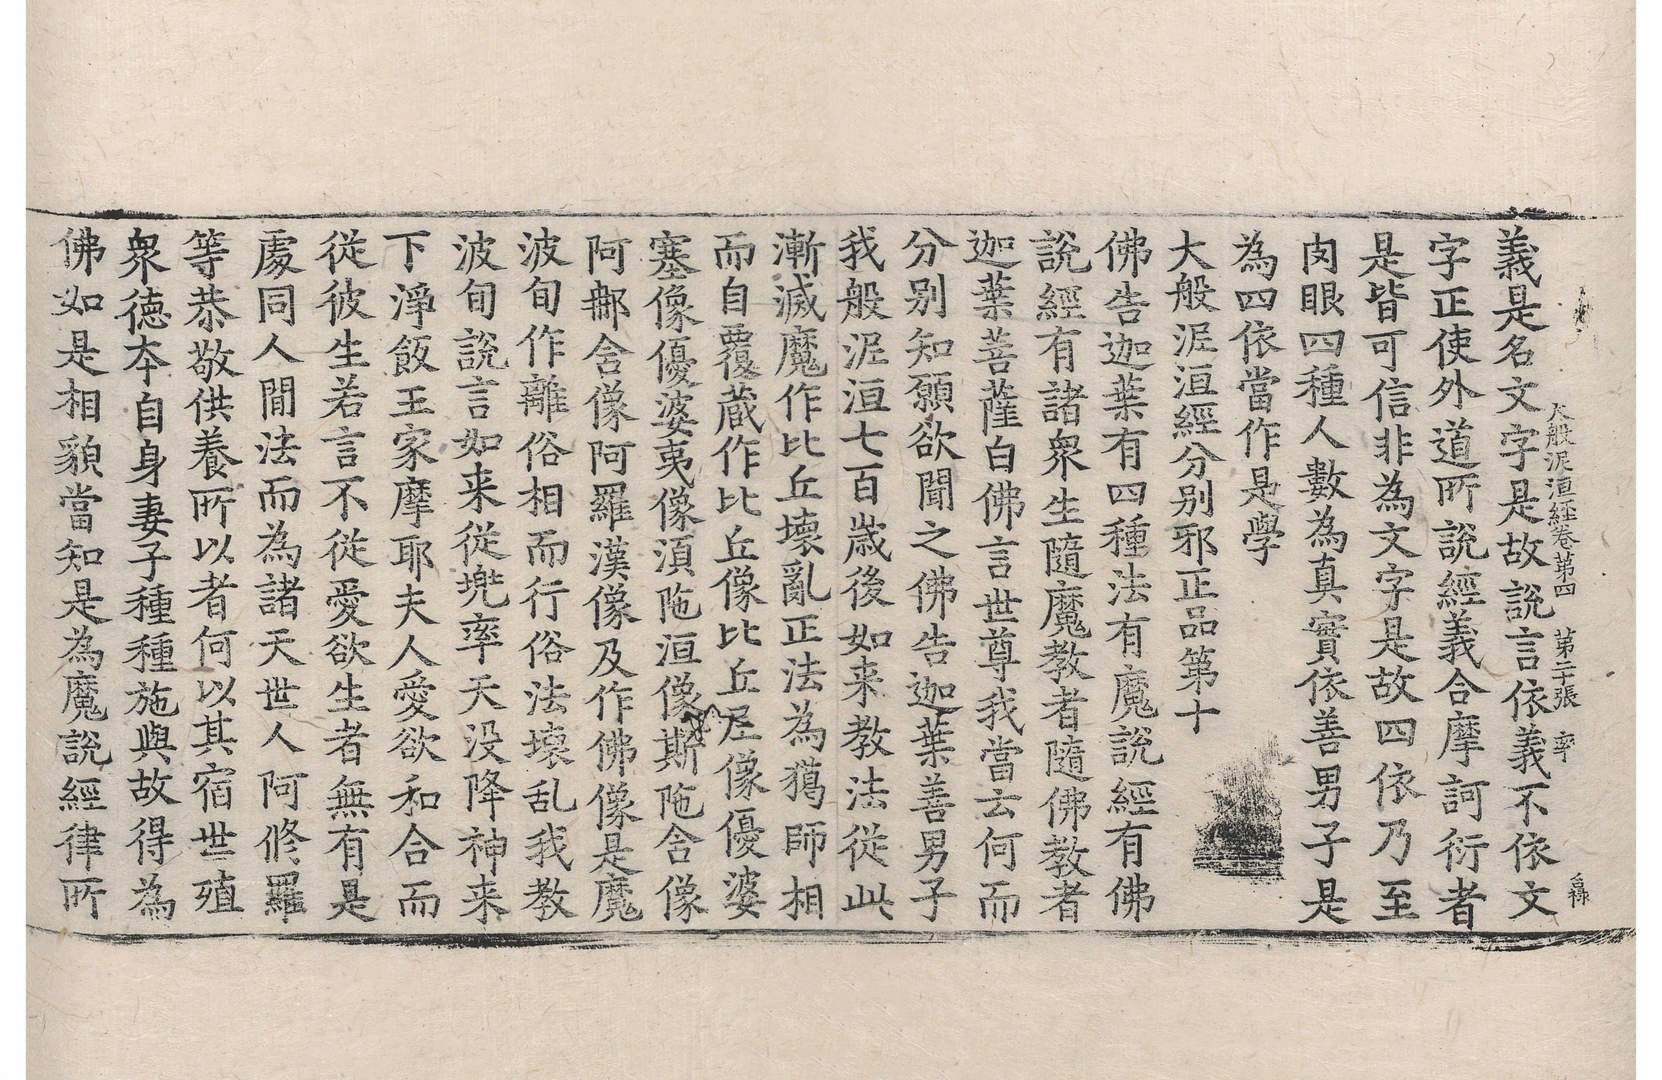 義是名文字是故說言依義不依文
大般泥洹經卷第四　第二十張　率
字正使外道所說經義合摩訶衍者
是皆可信非為文字是故四依乃至
肉眼四種人數為真實依善男子是
為四依當作是學
大般泥洹經分別邪正品第十
佛告迦葉有四種法有魔說經有佛
說經有諸衆生隨魔教者隨佛教者
迦葉菩薩白佛言世尊我當云何而
分別知願欲聞之佛告迦葉善男子
我般泥洹七百歲後如来教法從此
漸滅魔作比丘壞亂正法為獦師相
而自覆蔵作比丘像比丘尼像優婆
塞像優婆夷像須陁洹像斯陁含像
阿那含像阿羅漢像及作佛像是魔
波旬作離俗相而行俗法壞乱我教
波旬說言如来從兠率天没降神来
下淨飯王家摩耶夫人愛欲和合而
從彼生若言不從愛欲生者無有是
處同人間法而為諸天世人阿修羅
等恭敬供養所以者何以其宿世殖
衆德本自身妻子種種施與故得為
佛如是相貌當知是為魔說經律所